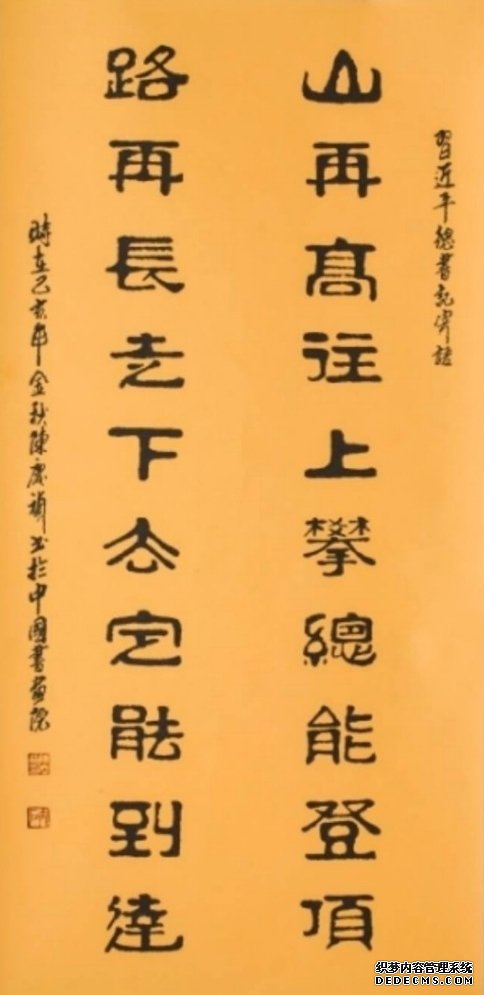 習近平總書記寄語
山再高往上攀總能登頂
路再長走下去定能到達
時在己亥年金秋陳慶書於中國書畫院
织梦内容管理系统
DEDECMS.COM